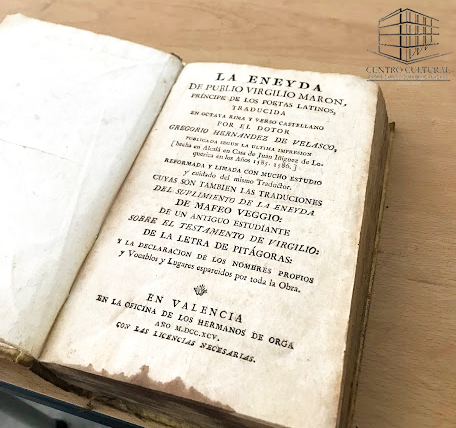 CENTRO CULTURAL
LA ENEYDA
DE PUBLIO VIRGILIO MARON,
PRÍNCIPE DE LOS POETAS LATINOS,
TRADUCIDA
EN OCTAVA RIMA Y VERSO CASTELLANO
POR EL DOTOR
GREGORIO HERNANDEZ DE VELASCO,
PUBLICADA SEGUN LA ULTIMA IMPRESION
[ hecha en Alcalá en Casa de Juan Iñiguez de Le-
querica en los Años 1585. 1586. ]
REFORMADA Y LIMADA CON MUCHO ESTUDIO
y cuidado del mismo Traductor.
CUYAS SON TAMBIEN LAS TRADUCIONES
DEL SUPLIMENTO DE LA ENEYDA
DE MAFEO VEGGIO:
DE UN ANTIGUO ESTUDIANTE
SOBRE EL TESTAMENTO DE VIRGILIO:
DE LA LETRA DE PITÁGORAS:
Y LA DECLARACION DE LOS NOMBRES PROPIOS
y Vocablos y Lugares esparcidos por toda la Obra.
EN VALENCIA
EN LA OFICINA DE LOS HERMANOS DE ORGA
AÑO M.DCC.XCV.
CON LAS LICENCIAS NECESARIAS.